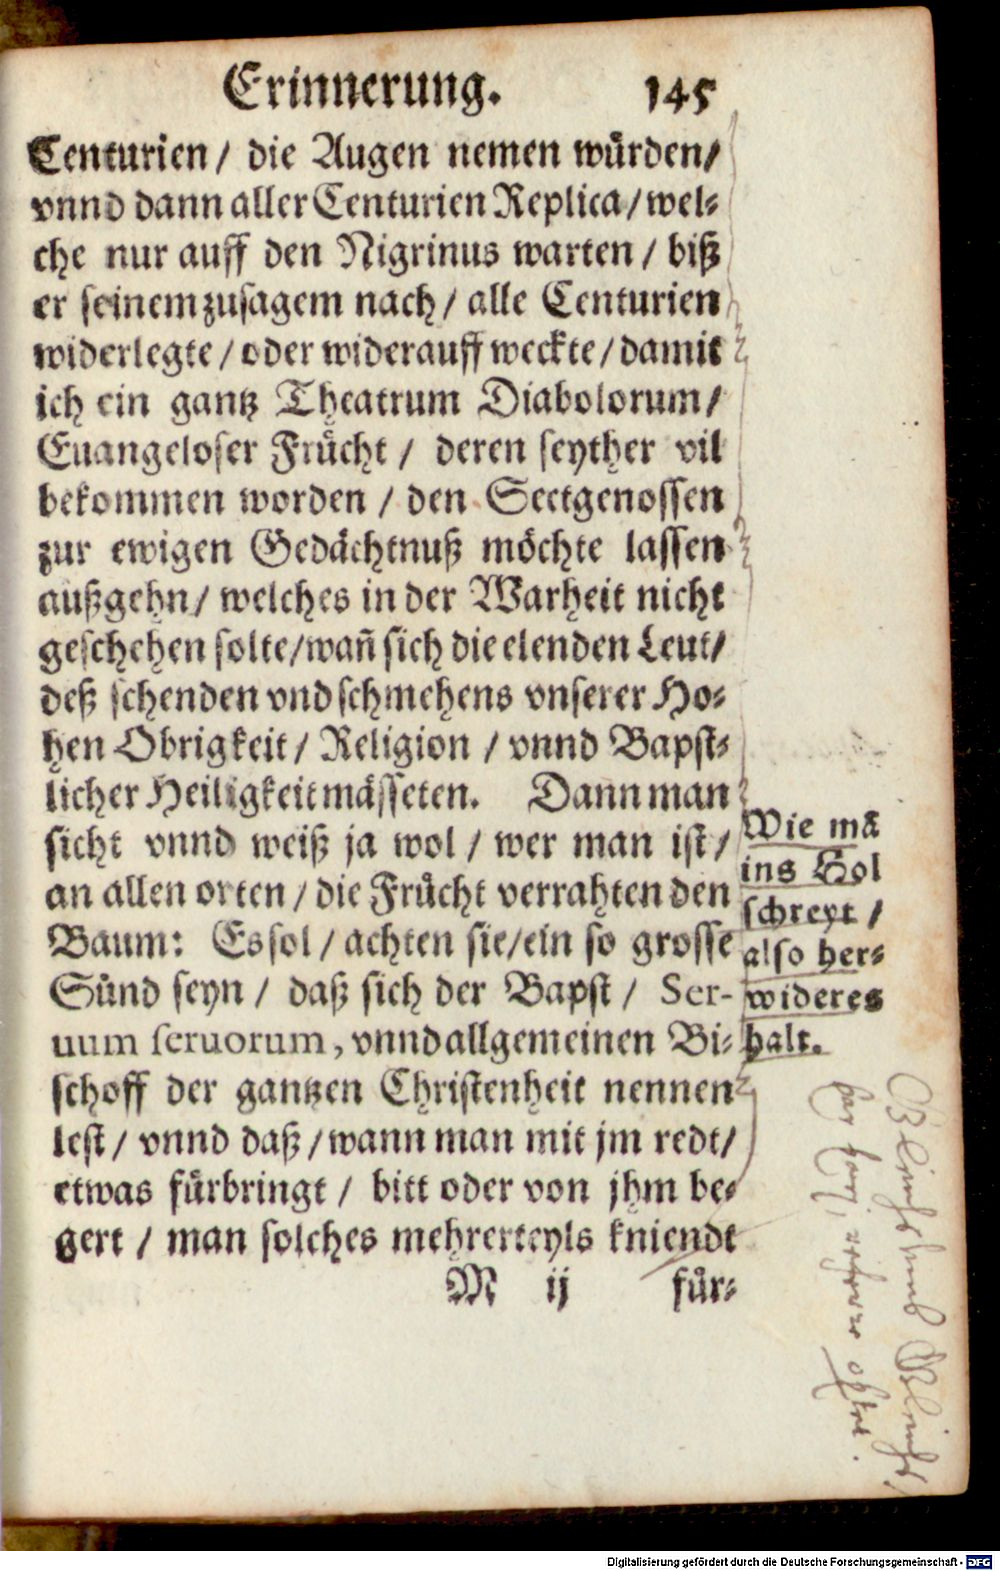 Erinnerung. 145
Centurien / die Augen nemen würden /
vnnd dann aller Centurien Replica / wel-
che nur auff den Nigrinus warten / biß
er seinem zusagem nach / alle Centurien
widerlegte / oder widerauff weckte / damit
ich ein gantz Theatrum Diabolorum /
Euangeloser Frücht / deren seyther vil
bekommen worden / den Sectgenossen
zur ewigen Gedächtnuß möchte lassen
außgehn / welches in der Warheit nicht
geschehen solte / wañ sich die elenden Leut /
deß schenden vnd schmehens vnserer Ho-
hen Obrigkeit / Religion / vnnd Bapst-
licher Heiligkeit mässeten. Dann man
sicht vnnd weiß ja wol / wer man ist /
an allen orten / die Frücht verrahten den
Baum: Es sol / achten sie / ein so grosse
Sünd seyn / daß sich der Bapst / Ser-
uum seruorum, vnnd allgemeinen Bi-
schoff der gantzen Christenheit nennen
lest / vnnd daß / wann man mit jm redt /
etwas fürbringt / bitt oder von jhm be-
gert / man solches mehrerteyls kniendt
M ij für-
Wie mã
ins Hol
schreyt /
also her-
wideres
halt.
Digitalisierung gefördert durch die Deutsche Forschungsgemeinschaft - DFG